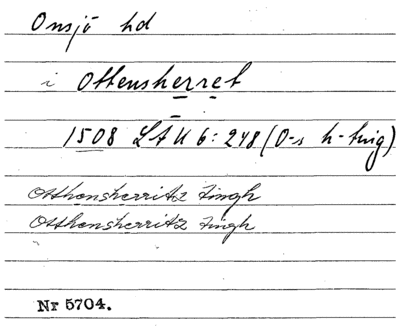 Onsjö hd
i Ottensherret
1508 LÅU 6:248 (O-s h-ting)
Otthensherritz tingh
Otthensherritz tingh
Nr 5704.